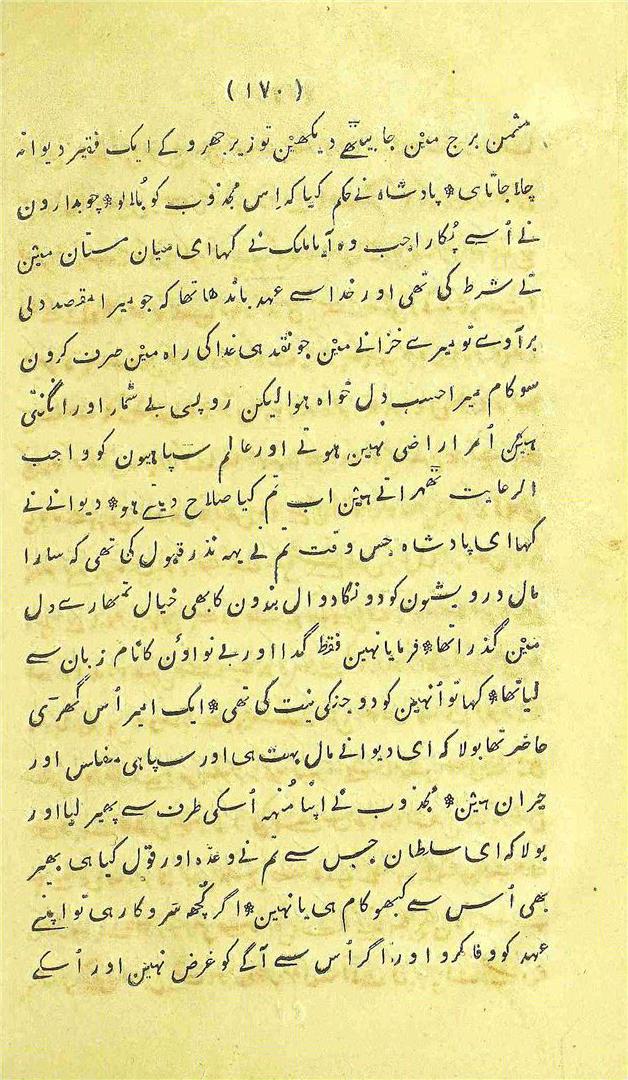 ( ١٧٠ )
مثمن برج مین جا بیٹھے دیکھین تو زیر جھروکے ایک فقیر دیوانہ
چلا جاتا ہی * پادشاہ نے حکم کیا کہ اِس مجذوب کو بُلا لو * چوبدارون
نے اُسے پُکارا جب وہ آیا ملک نے کہا ای میان مستان مین
نے شرط کی تھی اور خدا سے عہد باندھا تھا کہ جو میرا مقصد دلی
برآوے تو میرے خزانے مین جو نقد ہی خدا کی راہ مین صرف کرون
سو کام میرا حسب دل خواہ ہوا لیکن روپی بے شمار اور انگنتی
ہین اُمرا راضی نہین ہوتے اور عالم سپاہیون کو واجب
الرعایت ٹھہراتے ہین اب تم کیا صلاح دیتے ہو * دیوانے نے
کہا ای پادشاہ جس وقت تم نے یہہ نذر قبول کی تھی کہ سارا
مال درویشون کو دونگا دوال بندون کا بھی خیال تمھارے دل
مین گذرا تھا * فرمایا نہین فقط گدا اور بے نواؤن کا نام زبان سے
لیا تھا * کہا تو اُنہین کو دو جنکی نیت کی تھی * ایک امیر اُس گھڑی
حاضر تھا بولا کہ ای دیوانے مال بہت ہی اور سپاہی مفلس اور
حیران ہین * مجذوب نے اپنا مُنہہ اُسکی طرف سے پھیر لیا اور
بولا کہ ای سلطان جس سے تم نے وعدہ اور قول کیا ہی پھیر
بھی اُس سے کبھو کام ہی یا نہین * اگر کُچھ سَروکار ہی تو اپنے
عہد کو وفا کرو اور اگر اُس سے آگے کو غرض نہین اور اُسکے